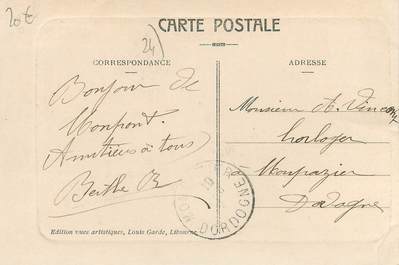 20€
24)
CARTE POSTALE
CORRESPONDANCE
Bonjour de
Monpont.
Amitiées à tous
Berthe B
ADRESSE
Monsieur A. Vincent
horloger
à Monpazier
Dordogne
DORDOGNE
Edition vues artistiques, Louis Garde, Libourne